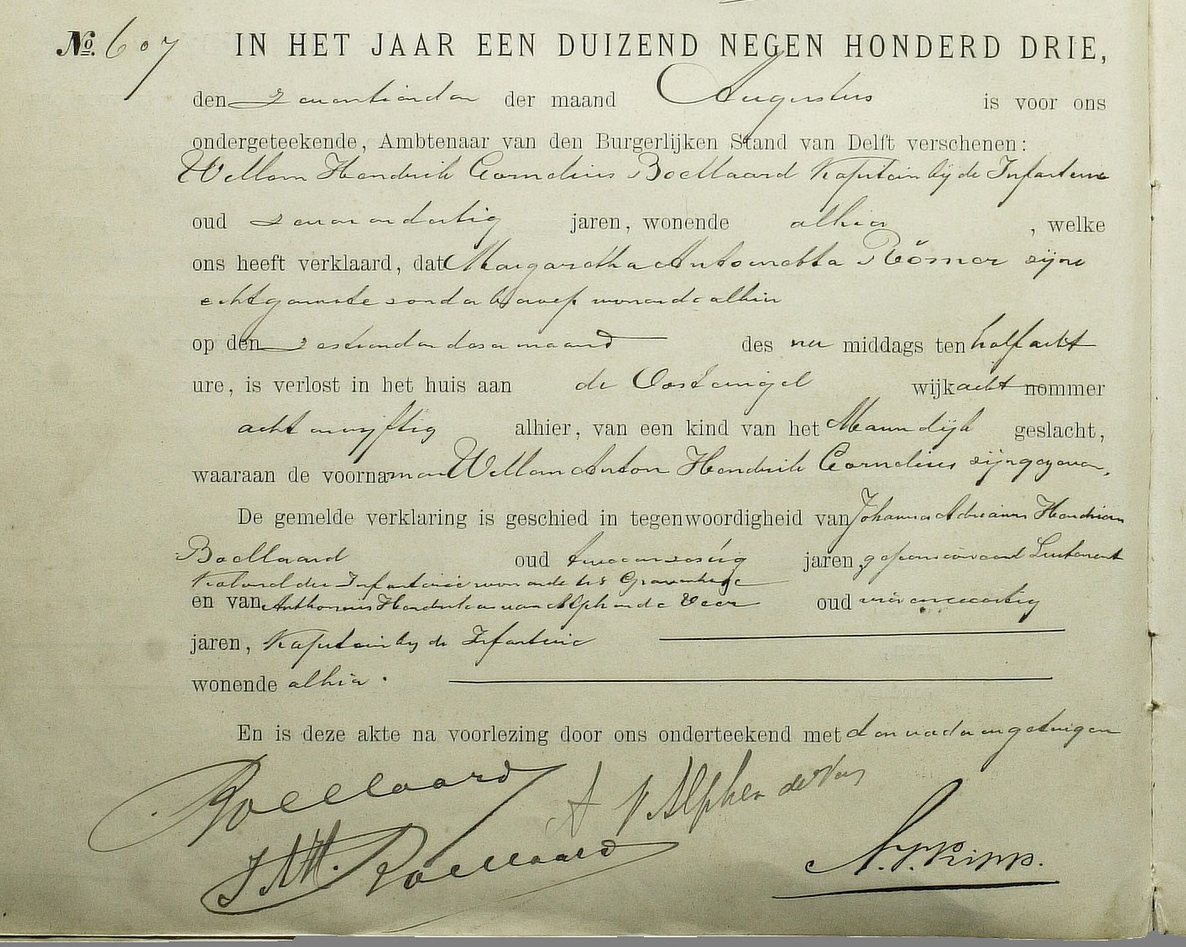 No. 607 IN HET JAAR EEN DUIZEND NEGEN HONDERD DRIE,
den zeventienden der maand Augustus is voor ons
ondergeteekende, Ambtenaar van den Burgerlijken Stand van Delft verschenen:
Willem Hendrik Cornelius Boellaard Kapitein bij de Infanterie
oud zevenendertig jaren, wonende alhier, welke
ons heeft verklaard, dat Margaretha Antoinetta Römer zijne
echtgenoote zonder beroep wonende alhier
op den zestienden dezer maand des na middags ten half acht
ure, is verlost in het huis aan de Oostsingel wijk acht nommer
acht en vijftig alhier, van een kind van het Mannelijk geslacht,
waaraan de voornamen Willem Anton Hendrik Cornelius zijn gegeven,
De gemelde verklaring is geschied in tegenwoordigheid van Johannes Adrianus Hendrien
Boellaard oud twee en zestig jaren, gepensioneerd Luitenant
Kolonel der Infanterie wonende te 's Gravenhage
en van Anthonius Hendrik van Alphen de Veer oud
jaren, Kapitein bij de Infanterie
wonende alhier.
En is deze akte na voorlezing door ons onderteekend met den vader en getuigen
Boellaard A v Alphen de Veer
J A H. Boellaard